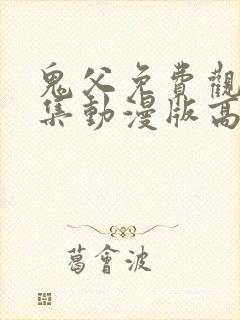 鬼父免費觀
集動漫版高
葛會波